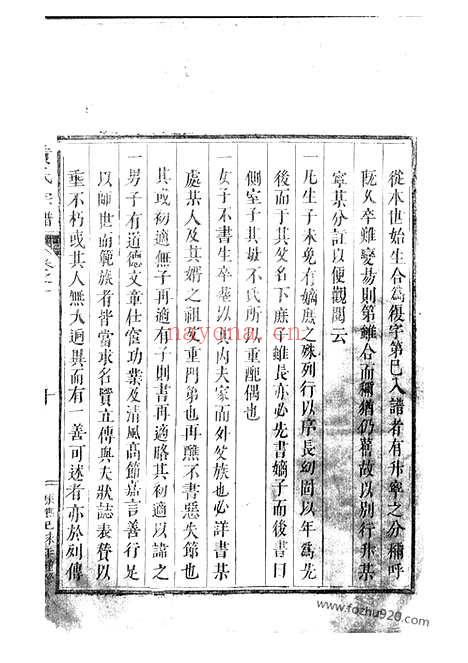 從本世始生合為復字第已入譜者有升寧之分稱呼
既久卒難變易則第雖合而稱猶仍舊故以別行升某
寧某分註以便觀閱云
一凡生子未免有嫡庶之殊列行以序長幼固以年為先
後而于其父名下庶子雖長亦必先書嫡子而後書曰
側室子其母不氏所以重配偶也
一女子不書生卒葬以其內夫家而外父族也必詳書某
處某人及其婿之祖父重門第也再醮不書惡失節也
其或初適無子再適有子則書再適略其初適以諱之
一男子有道德文章仕宦功業及清風高節嘉言善行足
以師世而範族者皆當求名賢立傳與夫狀誌表贊以
垂不朽或其人無大過異而有一善可述者亦於列傳
氏宗譜
卷之一
nayona.cn
www.fozhu920.com